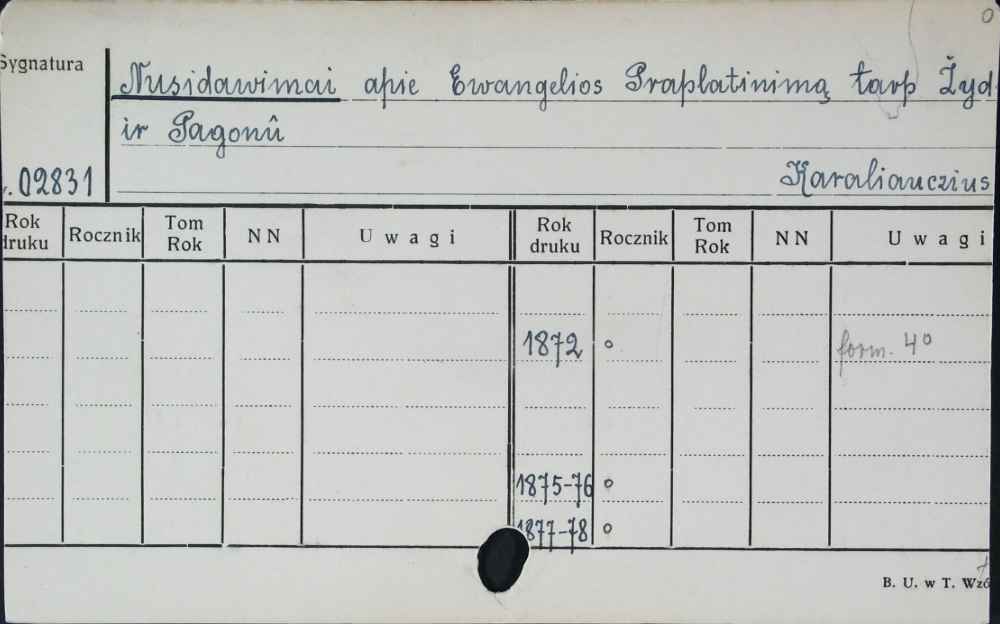 0
Sygnatura
Nusidawimai apie Ewangelios Praplatinimą tarp Żyd
ir Pagonû
02831
Karaliauczius
Rok druku Rocznik Tom Rok NN Uwagi Rok druku Rocznik Tom Rok NN Uwagi
1872 o form. 4º
1875-76 o
1877-78 o
B. U. w T. Wzó